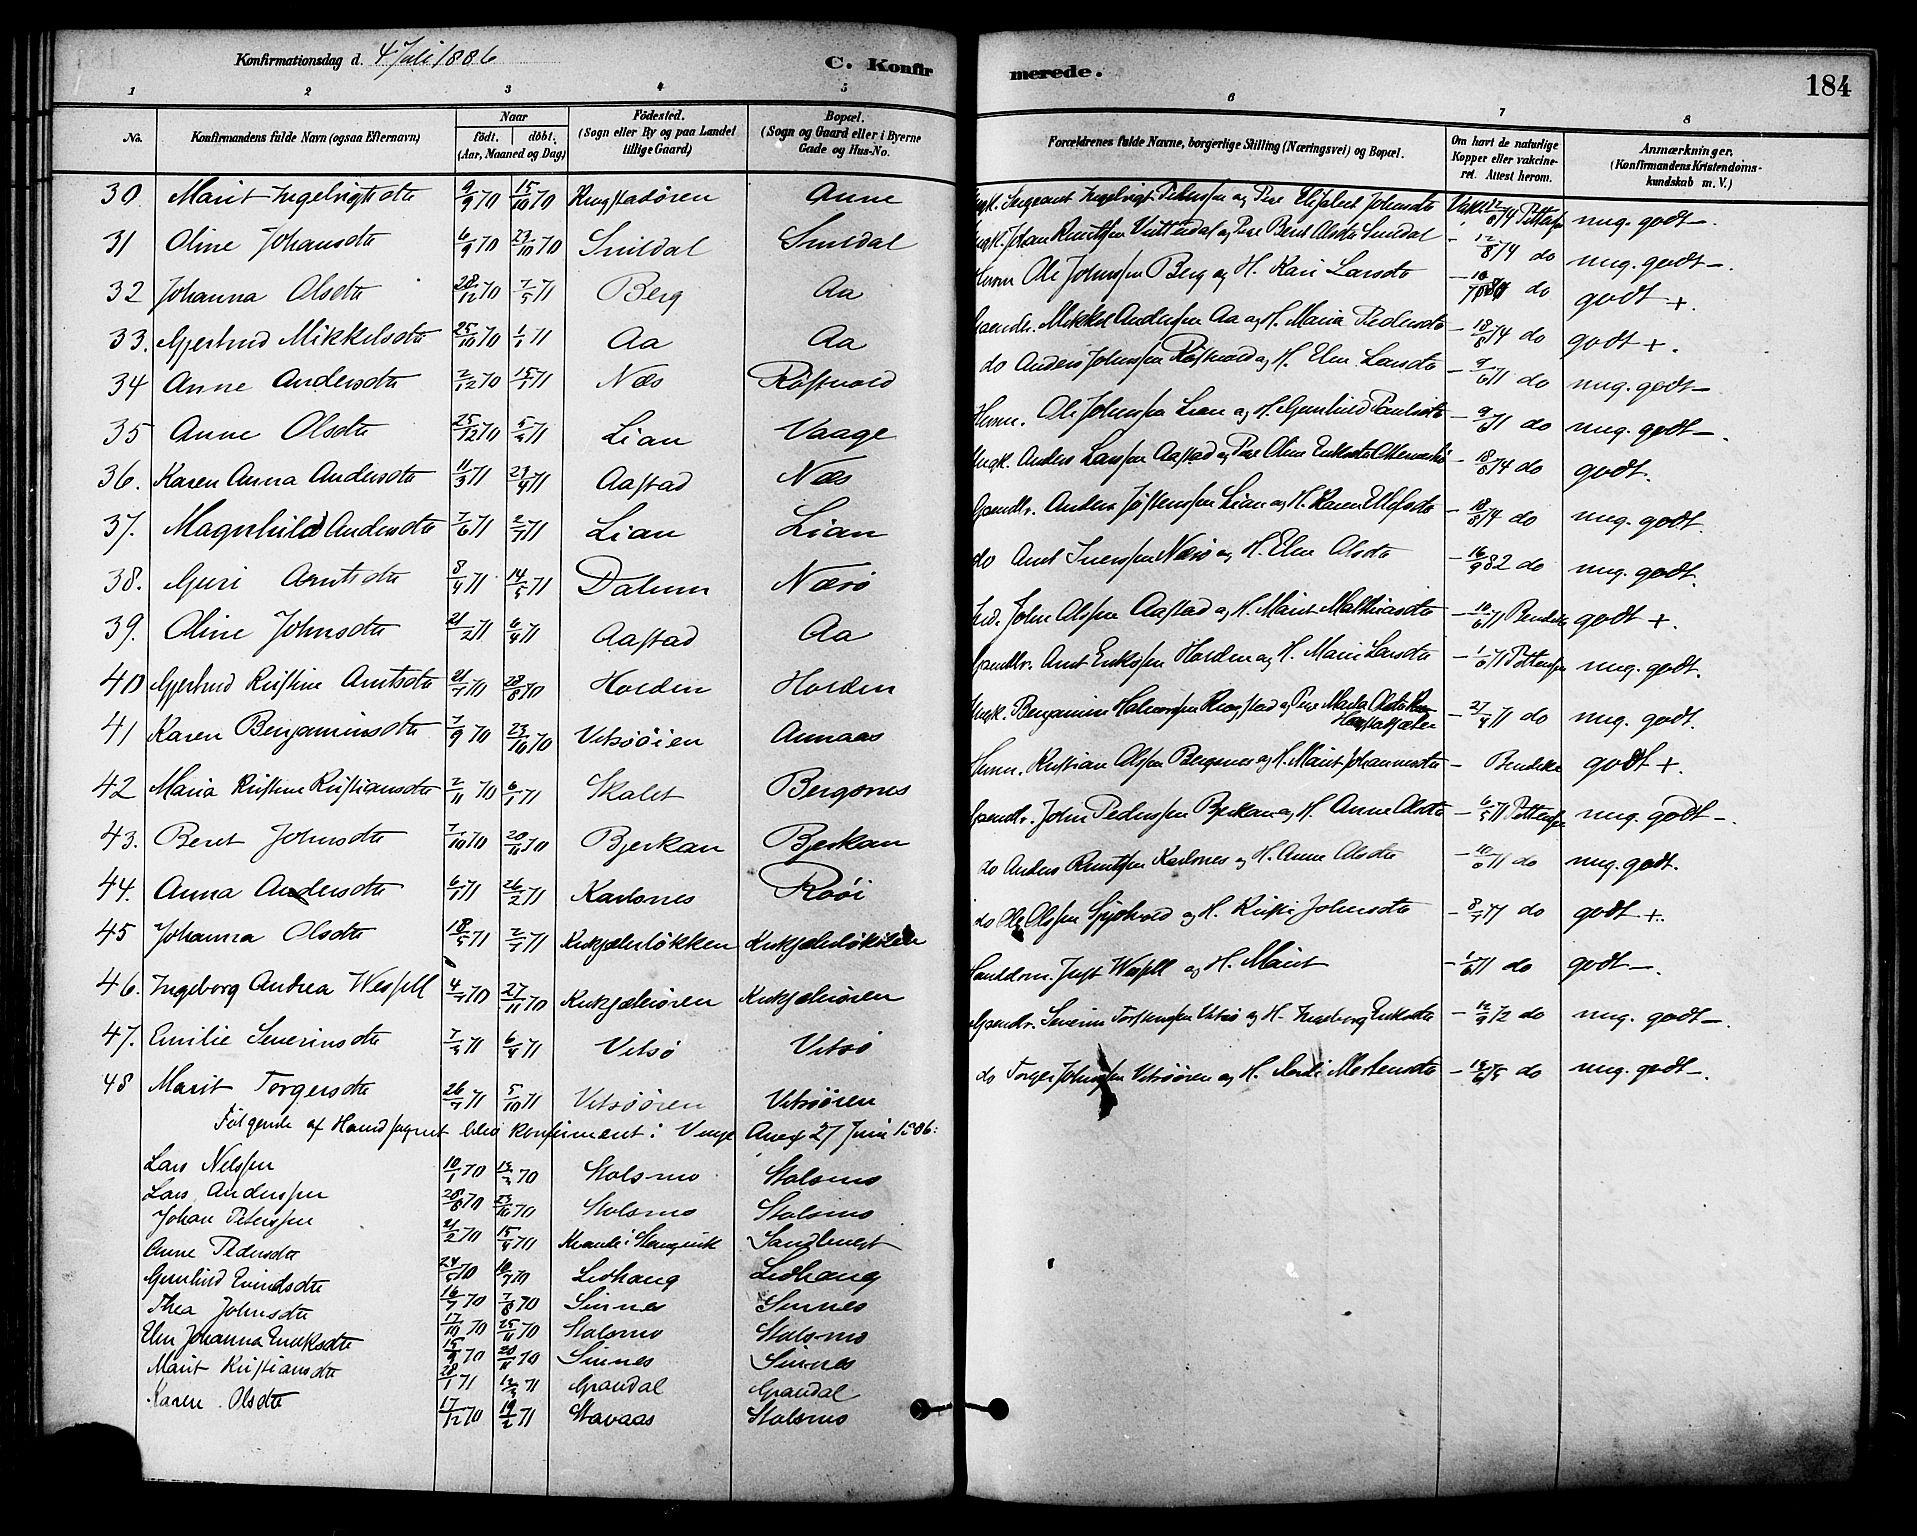 Konfirmationsdag d. 4 Juli 1886
C. Konfirmerede. 184
1 2 3 4 5 6 7 8
No. Konfirmandens fulde Navn (ogsaa Efternavn) Naar födt. döbt. (Aar, Maaned og Dag) Födested. (Sogn eller By og paa Landet tillige Gaard) Bopæl. (Sogn og Gaard eller i Byerne Gade og Hus-No. Forældrenes fulde Navne, borgerlige Stilling (Næringsvei) og Bopæl. Om havt de naturlige Kopper eller vakcineret. Attest herom. Anmærkninger. (Konfirmandens Kristendomskundskab m. V.)
30 Marit Ingebrigtsdtr 9/9 70 15/10 70 Ringstadören Anne Ungk. Sergeant Ingebrigt Peterssen og Pige Elisabet Johnsdtr mg. godt -.
31 Oline Johansdtr 6/9 70 23/10 70 Snildal Snildal Ungk. Johan Knutssen og Pige Beret Olsdtr Snildal - 12/8 74 do mg. godt -.
32 Johanna Olsdtr 28/12 70 7/5 71 Berg Aa Husm. Ole Johnssen Berg og H. Kari Larsdtr do godt +.
33. Gjertrud Mikkelsdtr 25/10 70 1/1 71 Aa Aa Gaardbr. Mikkel Anderssen Aa og H. Maria Pedersdtr - 18/8 74 do godt +.
34 Anne Andersdtr 2/12 70 15/1 71 Næs Röstvold do Anders Johnssen Röstvold og H. Elen Larsdtr - 9/6 71 do mg. godt -
35 Anne Olsdtr 25/12 70 5/3 71 Lian Vaage Husm. Ole Johnssen Lian og H. Gunhild Paulsdtr - 9/6 71 do mg. godt -.
36. Karen Anna Andersdtr 11/3 71 23/4 71 Aastad Næs Ungk. Anders Larssen Aastad og Pige Oline Eriksdtr - 18/8 74 do godt.
37. Magnhild Andersdtr 7/6 71 2/7 71 Lian Lian Gaardbr. Anders Jostenssen Lian og H. Karen Ellefsdtr - 18/8 74 do mg. godt
38. Guri Arntsdtr 8/4 71 14/5 71 Dalum Næsö do Arnt Iverssen Næsö og H. Elen Olsdtr - 16/9 82 do mg. godt.
39. Oline Johnsdtr 21/2 71 6/4 71 Aastad Aa John Olssen Aastad og H. Marit Mathiasdtr - 10/6 71 godt +.
40 Gjertrud Kristine Arntsdtr 21/7 70 28/8 70 Holden Holden Gaardbr. Arnt Erikssen Holden og H. Marie Larsdtr - 1/6 71 mg. godt.
41 Karen Benjaminsdtr 7/9 70 23/10 70 Vitsöören Aunaas Ungk. Benjamin Halvorssen Ringstad og Pige Marta Olsdtr - 27/4 71 do mg. godt.
42 Maria Kristine Kristiansdtr 2/11 70 6/1 71 Skalet Bergsnes Husm. Kristian Olssen Bergsnes og H. Marit Johannesdtr - godt +.
43. Beret Johnsdtr 7/10 70 20/11 70 Bjerkan Bjerkan Gaardbr. John Pederssen Bjerkan og H. Anne Olsdtr - 6/5 71 mg. godt -.
44. Anna Andersdtr 6/1 71 26/2 71 Karlsnes Roöi do Anders Knutssen Karlsnes og H. Anne Olsdtr - 10/6 71 do mg. godt.
45 Johanna Olsdtr 18/5 71 2/7 71 Kirksæterlökken Kirksæterlökken do Ole Olssen og H. Kirsti Johnsdtr - 8/7 77 do godt +.
46. Ingeborg Andrea Wessel 4/7 70 27/11 70 Kirksæterören Kirksæterören Just Wessel og H. Marit - 1/6 71 do godt -.
47. Emilie Severinsdtr 7/3 71 6/4 71 Vitsö Vitsö Gaardbr. Severin Torstenssen Vitsö og H. Ingeborg Eriksdtr - 12/9 72 do mg. godt -.
48 Marit Torgersdtr 26/7 71 5/10 71 Vitsöören Vitsöören do Torger Johnssen Vitsöören og H. Mortensdtr do mg. godt -.
Fölgende af Hovedsognet blev konfirmeret i Vinje Anex 27 Juni 1886:
Lars Nilssen 10/1 70 13/3 70 Stolsmo Stolsmo
Lars Anderssen 28/8 70 23/10 70 Stolsmo Stolsmo
Johan Peterssen 21/2 70 15/4 71
Anne Pedersdtr 24/5 70 10/7 70 Lidhaug Lidhaug
Gunhild Evindsdtr 16/7 70 7/8 70 Sinnes Sinnes
Thea Johnsdtr 17/10 70 25/11 70 Stolsmo Stolsmo
Elen Johanna 15/9 70 20/11 70 Sinnes Sinnes
Marit Kristiansdtr 28/1 71 12/3 71 Grandal Grandal
Karen Olsdtr 17/12 70 19/2 71 Stavaas Stolsmo